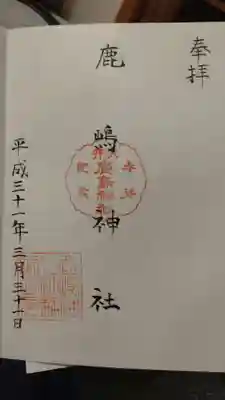 奉拝
鹿嶋神社
平成三十一年三月三十一日